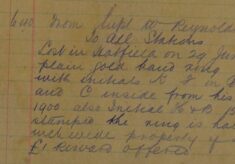 6 40 From Supt Mc Reynolds
To All Stations
Lost in Hatfield on 29 Jun
plain gold band ring
with Initials
and C inside from his
1900 also Initial &
stamped the ring is
wide property of
£1 Reward offered